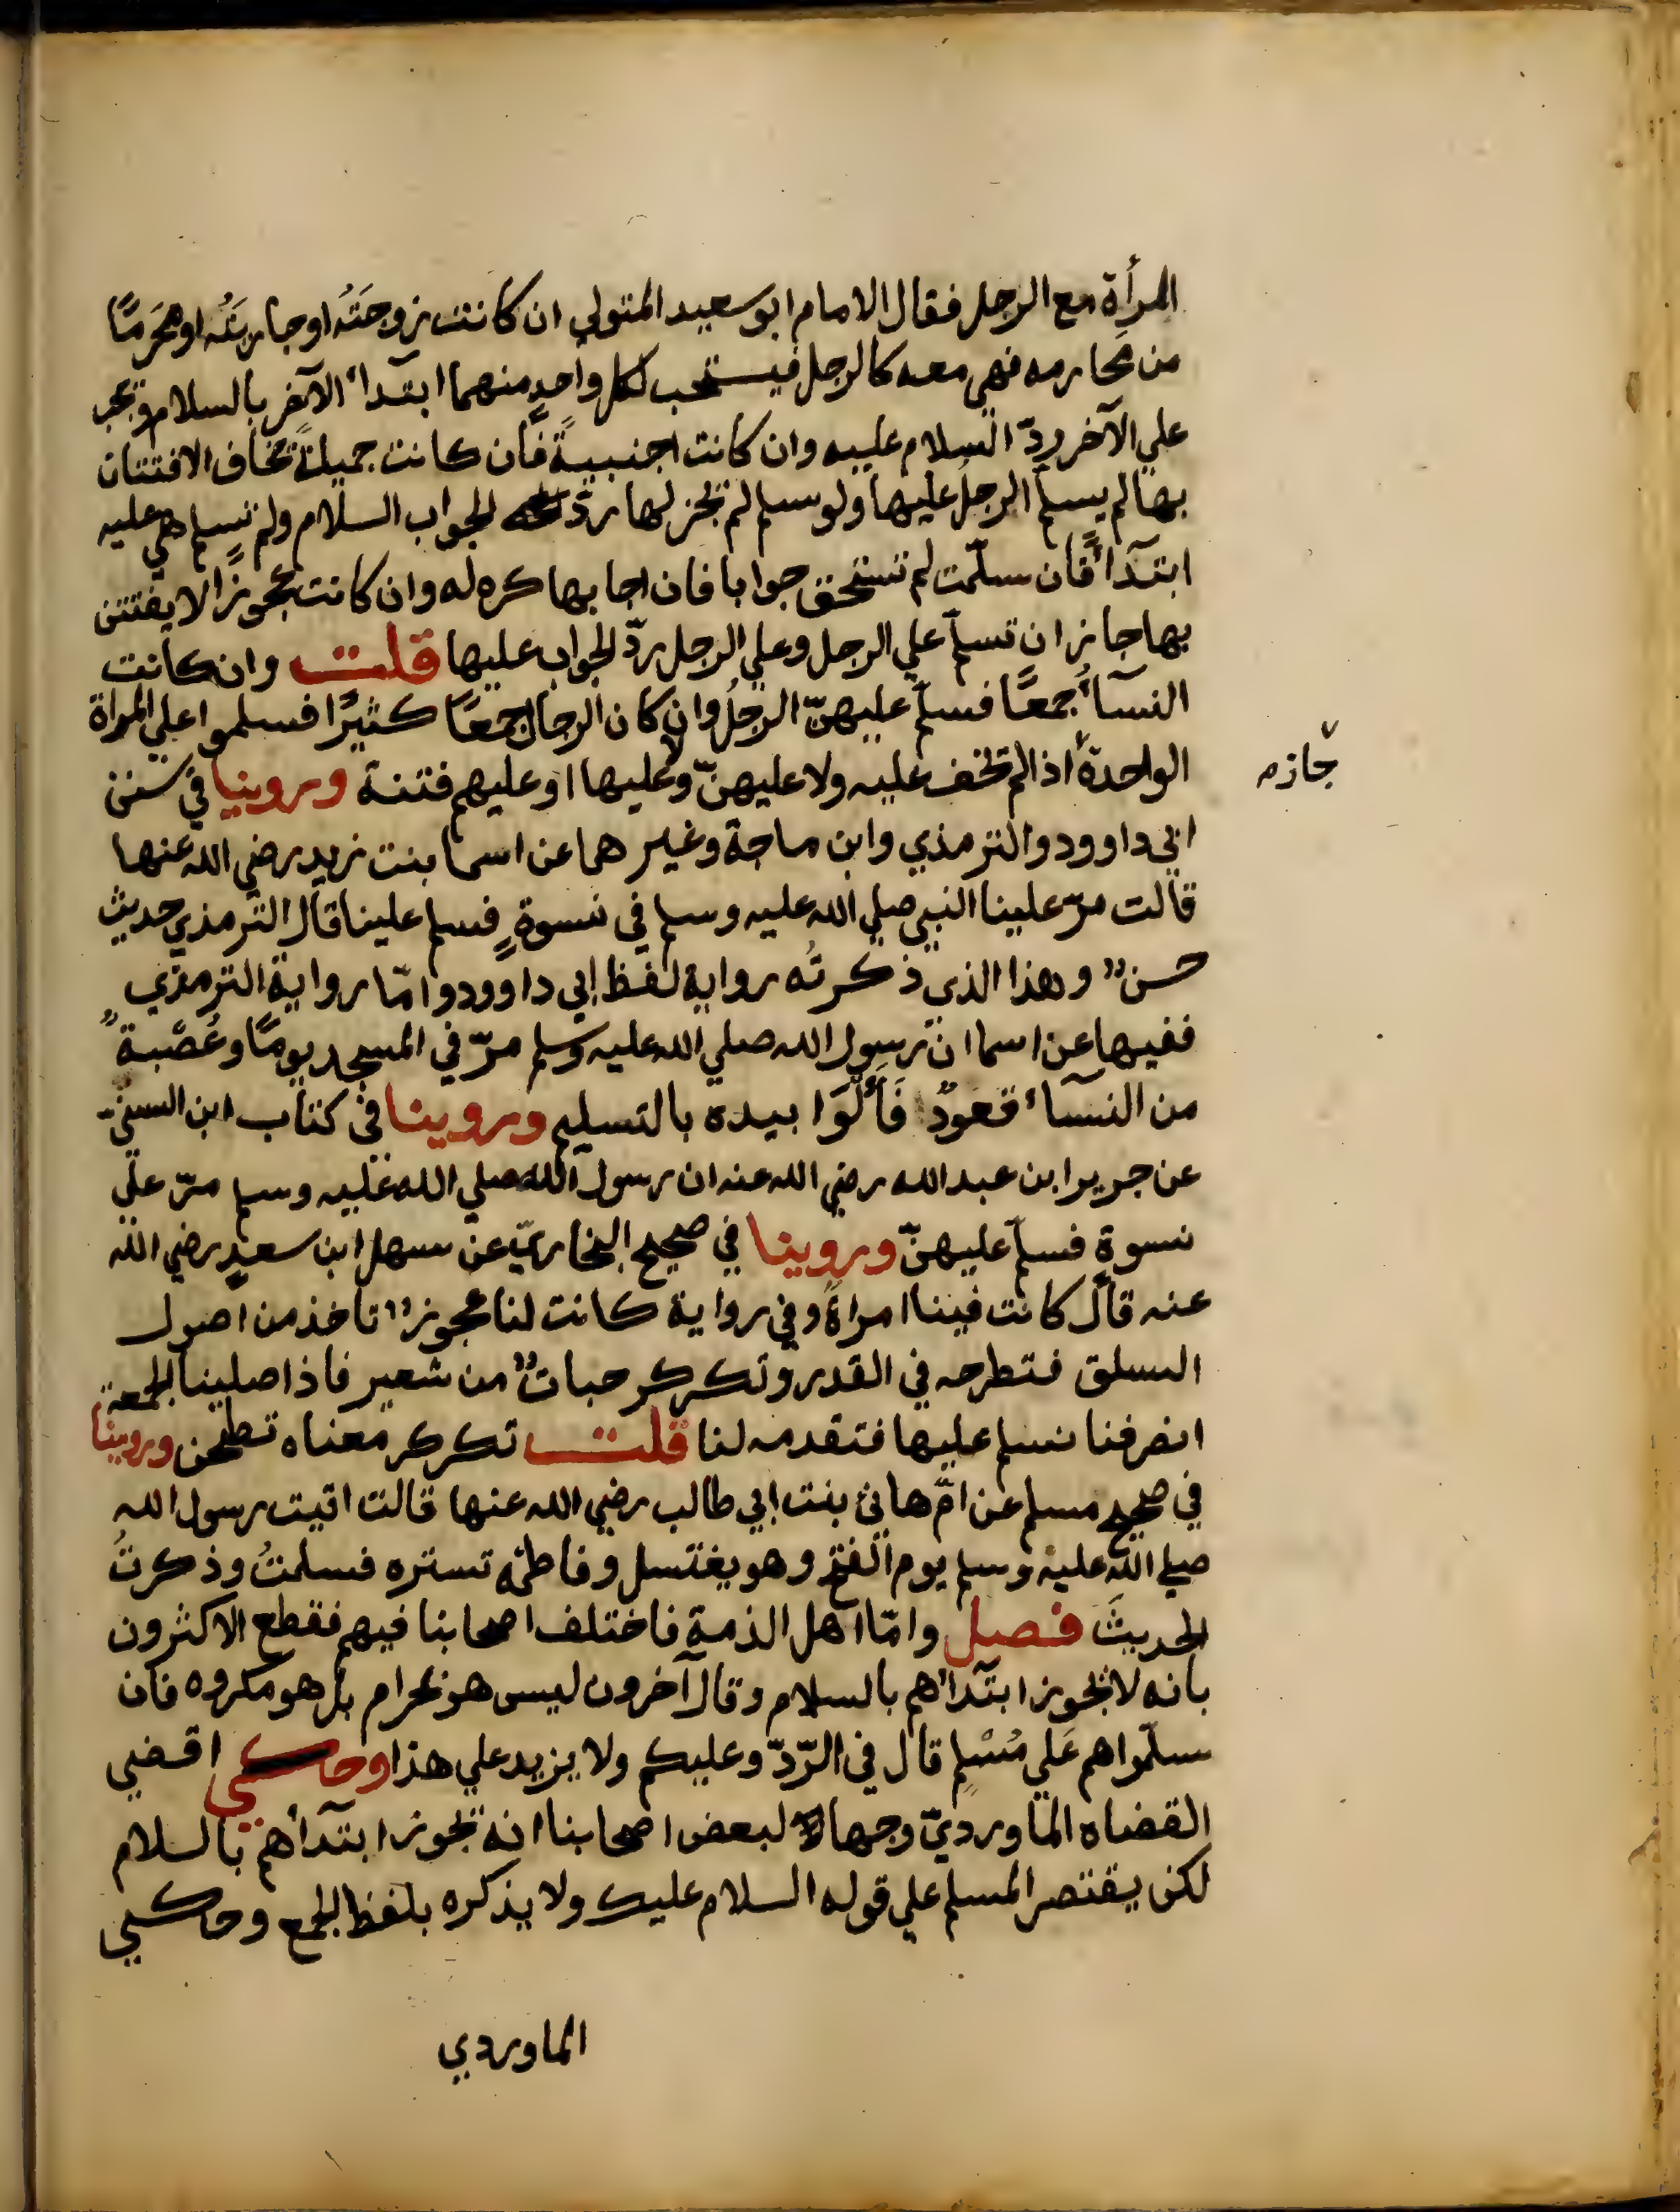 المرأة مع الرجل فقال الامام ابو سعيد المتولي ان كانت زوجَتَهُ او جاريتَهُ او مَحرَمًا
من محارمه فهي معه كالرجل فيستحب لكل واحدٍ منهما ابتدآء الآخر بالسلام ويجب
علي الآخر ردّ السلام عليه وان كانت اجنبيةً فان كانت جميلةً يخاف الافتتان
بها لم يسلم الرجلُ عليها ولو سلم لم يجز لها ردّ الجواب السلام ولم تسلم هي عليه
ابتدآءً فان سلّمت لم تستحق جوابا فان اجابها كره له وان كانت عجوزًا لا يفتتن
بها جاز ان تسلم علي الرجل وعلي الرجل ردّ الجواب عليها قلت وان كانت
النسآءُ جمعًا فسلم عليهنّ الرجلُ وان كان الرجال جمعًا كثيرًا فسلموا علي المراة
الواحدة اذا لم يخف عليه ولا عليهنّ ولا عليها او عليهم فتنة وروينا في سنن
جاز م
ابي داوود والترمذي وابن ماجة وغيرهما عن اسما بنت يزيد رضي الله عنها
قالت مرّ علينا النبي صلي الله عليه وسلم في نسوةٍ فسلم علينا قال الترمذي حديث
حسنٌ وهذا الذي ذكرتُه رواية لفظ ابي داوود وامّا رواية الترمذي
ففيها عن اسما ان رسول الله صلي الله عليه وسلم مرّ في المسجد يومًا وعُصْبةٌ
من النسآء قعودٌ فَأَلْوَا بيده بالتسليم وروينا في كتاب ابن السنيّ
عن جرير ابن عبد الله رضي الله عنه ان رسول الله صلي الله عليه وسلم مرّ علي
نسوة فسلم عليهنّ وروينا في صحيح البخاريّ عن سهل ابن سعدٍ رضي الله
عنه قال كانت فينا امراةٌ وفي رواية كانت لنا عجوزٌ تاخذ من اصول
السلق فتطرحه في القدر وتكركر حباتٌ من شعير فاذا صلينا الجمعة
انصرفنا نسلم عليها فتقدمه لنا قلت تكركر معناه تطحن وروينا
في صحيح مسلم عن امّ هانئ بنت ابي طالب رضي الله عنها قالت اتيت رسول الله
صلي الله عليه وسلم يوم الفتح وهو يغتسل وفاطمة تستره فسلمتُ وذكرتُ
الحديثَ فصل وامّا اهل الذمة فاختلف اصحابنا فيهم فقطع الاكثرون
بانه لا يجوز ابتدآءهم بالسلام وقال آخرون ليس هو بحرام بل هو مكروه فان
سلّموا هم عَلي مُسْلِم قال في الرّدّ وعليكم ولا يزيد علي هذا وحكي اقضي
القضاه الماورديّ وجها لبعض اصحابنا انه يجوز ابتدآءهم بالسلام
لكن يقتصر المسلم علي قوله السلام عليك ولا يذكره بلفظ الجمع وحكي
الماوردي